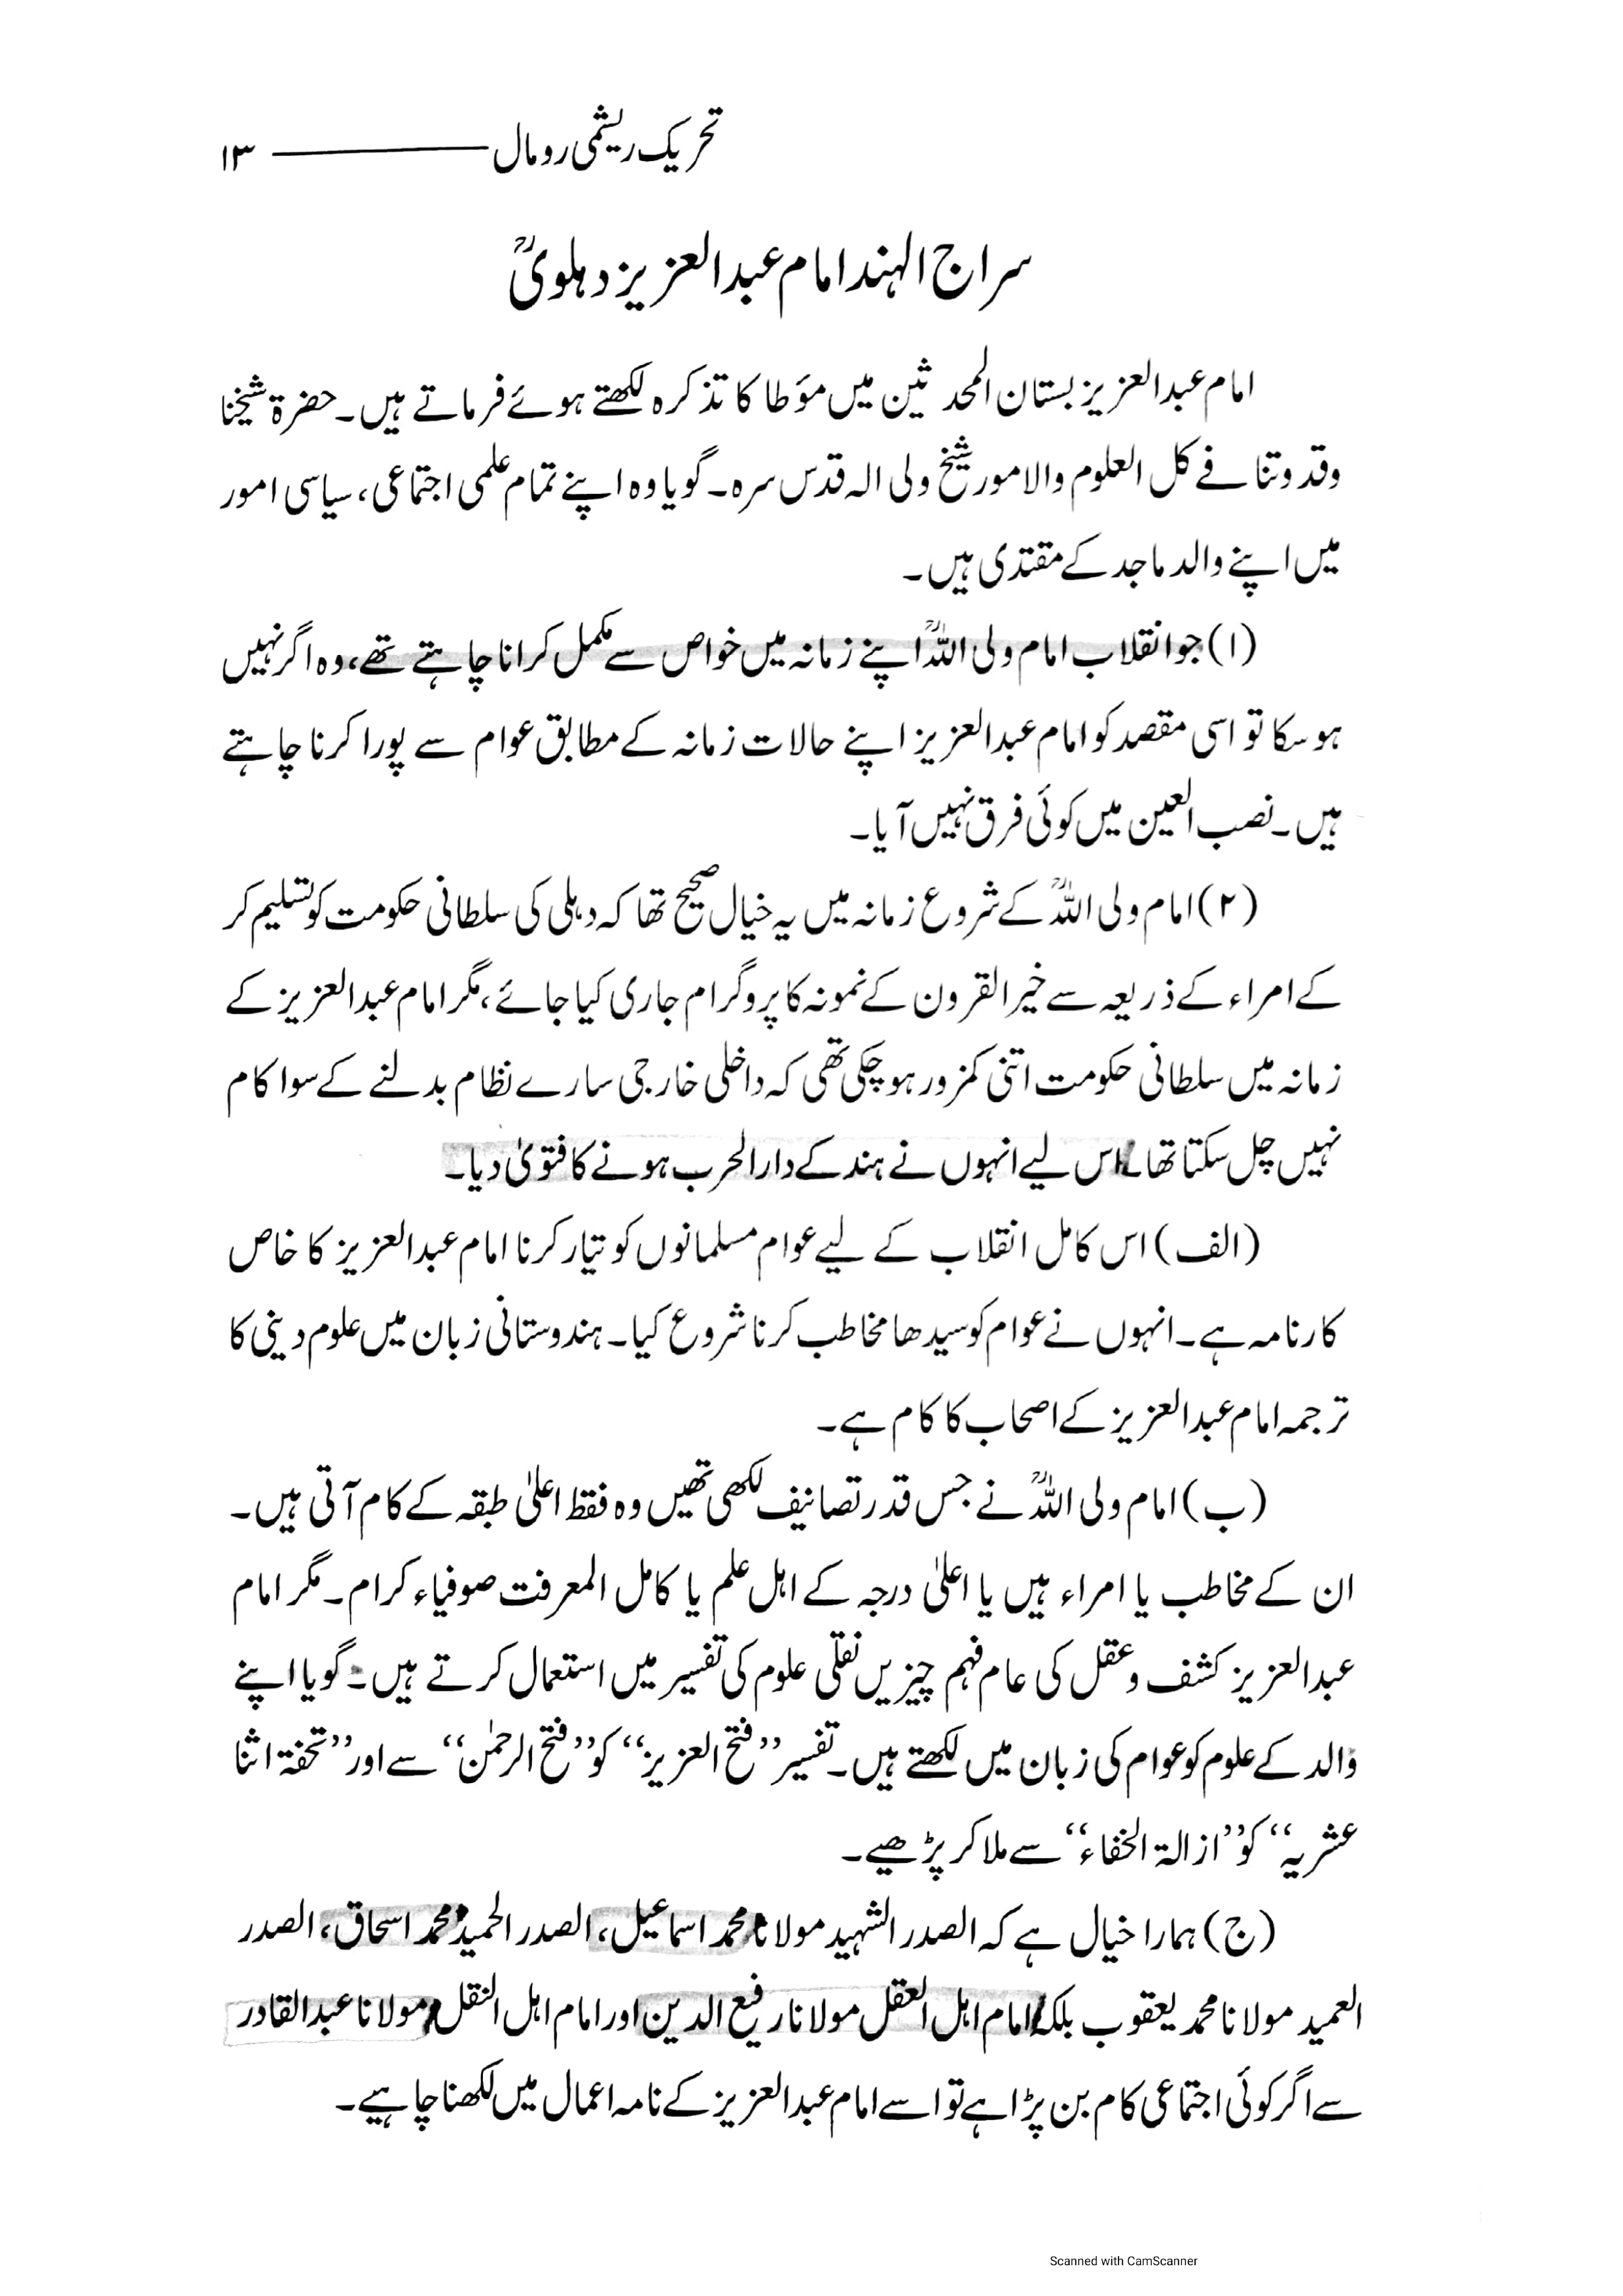 تحریک ریشمی رومال ـــــــــــــــ ۱۳
سراج الہند امام عبدالعزیز دہلویؒ
امام عبدالعزیز بستان المحدثین میں مؤطا کا تذکرہ لکھتے ہوئے فرماتے ہیں۔ حضرۃ شیخنا
وقدوتنا فے کل العلوم والامور شیخ ولی الہ قدس سرہ۔ گویا وہ اپنے تمام علمی اجتماعی، سیاسی امور
میں اپنے والد ماجد کے مقتدی ہیں۔
(۱) جو انقلاب امام ولی اللہؒ اپنے زمانہ میں خواص سے مکمل کرانا چاہتے تھے، وہ اگر نہیں
ہو سکا تو اسی مقصد کو امام عبدالعزیز اپنے حالات زمانہ کے مطابق عوام سے پورا کرنا چاہتے
ہیں۔ نصب العین میں کوئی فرق نہیں آیا۔
(۲) امام ولی اللہؒ کے شروع زمانہ میں یہ خیال صحیح تھا کہ دہلی کی سلطانی حکومت کو تسلیم کر
کے امراء کے ذریعہ سے خیر القرون کے نمونہ کا پروگرام جاری کیا جائے، مگر امام عبدالعزیز کے
زمانہ میں سلطانی حکومت اتنی کمزور ہو چکی تھی کہ داخلی خارجی سارے نظام بدلنے کے سوا کام
نہیں چل سکتا تھا۔ اس لیے انہوں نے ہند کے دارالحرب ہونے کا فتویٰ دیا۔
(الف) اس کامل انقلاب کے لیے عوام مسلمانوں کو تیار کرنا امام عبدالعزیز کا خاص
کارنامہ ہے۔ انہوں نے عوام کو سیدھا مخاطب کرنا شروع کیا۔ ہندوستانی زبان میں علوم دینی کا
ترجمہ امام عبدالعزیز کے اصحاب کا کام ہے۔
(ب) امام ولی اللہؒ نے جس قدر تصانیف لکھی تھیں وہ فقط اعلیٰ طبقہ کے کام آتی ہیں۔
ان کے مخاطب یا امراء ہیں یا اعلیٰ درجہ کے اہل علم یا کامل المعرفت صوفیاء کرام۔ مگر امام
عبدالعزیز کشف و عقل کی عام فہم چیزیں نقلی علوم کی تفسیر میں استعمال کرتے ہیں۔ گویا اپنے
والد کے علوم کو عوام کی زبان میں لکھتے ہیں۔ تفسیر ’’فتح العزیز‘‘ کو ’’فتح الرحمٰن‘‘ سے اور ’’تحفۃ اثنا
عشریہ‘‘ کو ’’ازالۃ الخفاء‘‘ سے ملا کر پڑھیے۔
(ج) ہمارا خیال ہے کہ الصدر الشہید مولانا محمد اسماعیل، الصدر الحمید محمد اسحاق، الصدر
العمید مولانا محمد یعقوب بلکہ امام اہل العقل مولانا رفیع الدین اور امام اہل النقل مولانا عبدالقادر
سے اگر کوئی اجتماعی کام بن پڑا ہے تو اسے امام عبدالعزیز کے نامہ اعمال میں لکھنا چاہیے۔
Scanned with CamScanner